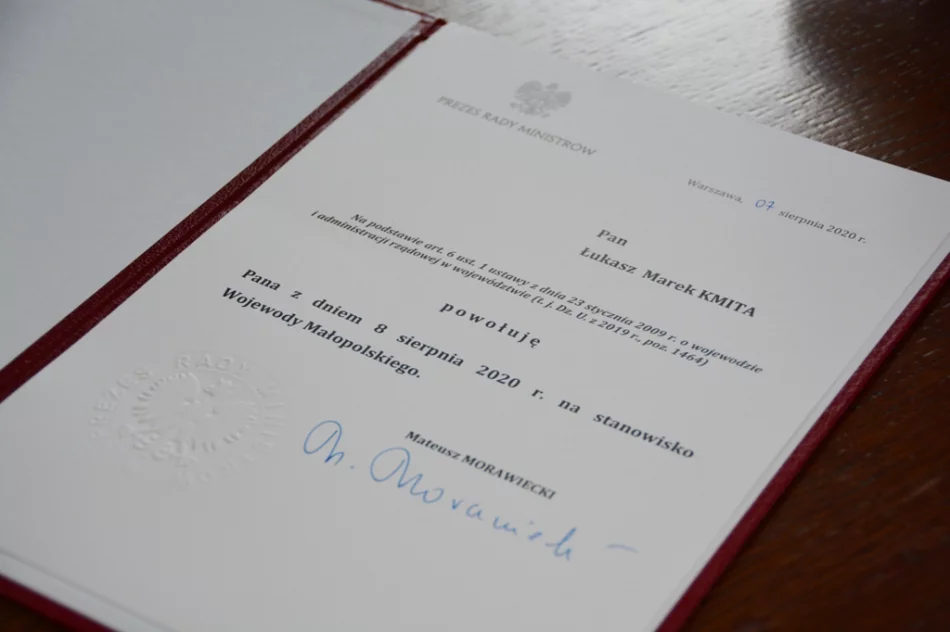 PREZES RADY MINISTRÓW
Warszawa, 07 sierpnia 2020 r.
Pan
Łukasz Marek KMITA
Na podstawie art. 6 ust. 1 ustawy z dnia 23 stycznia 2009 r. o wojewodzie
i administracji rządowej w województwie (t. j. Dz. U. z 2019 r., poz. 1464)
powołuję
Pana z dniem 8 sierpnia 2020 r. na stanowisko
Wojewody Małopolskiego.
Mateusz MORAWIECKI
M. Morawiecki
PREZES RADY